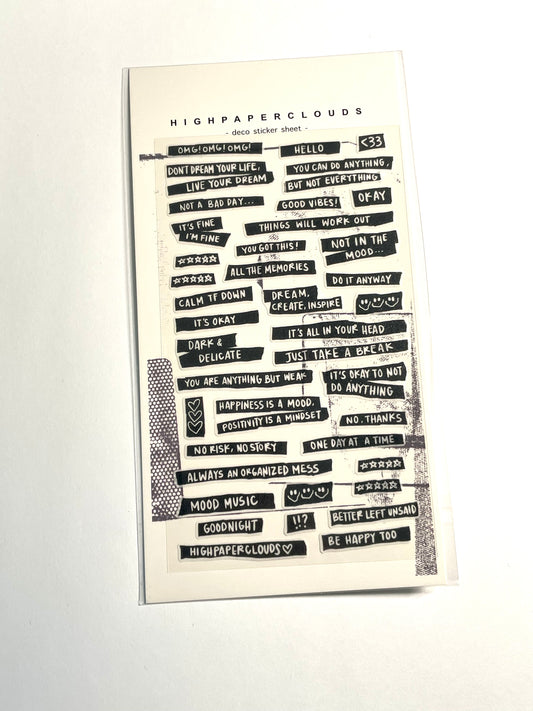 HIGHPAPERCLOUDS
- deco sticker sheet -
OMG! OMG! OMG!
HELLO
<33
DON'T DREAM YOUR LIFE,
LIVE YOUR DREAM
YOU CAN DO ANYTHING,
BUT NOT EVERYTHING
NOT A BAD DAY...
GOOD VIBES!
OKAY
IT'S FINE
I'M FINE
THINGS WILL WORK OUT
YOU GOT THIS!
NOT IN THE
MOOD...
☆☆☆☆☆
☆☆☆☆☆
ALL THE MEMORIES
DO IT ANYWAY
CALM TF DOWN
DREAM,
CREATE, INSPIRE
IT'S OKAY
IT'S ALL IN YOUR HEAD
DARK &
DELICATE
JUST TAKE A BREAK
YOU ARE ANYTHING BUT WEAK
IT'S OKAY TO NOT
DO ANYTHING
HAPPINESS IS A MOOD,
POSITIVITY IS A MINDSET
NO, THANKS
NO RISK, NO STORY
ONE DAY AT A TIME
ALWAYS AN ORGANIZED MESS
☆☆☆☆☆
☆☆☆☆☆
MOOD MUSIC
GOODNIGHT
!!?
BETTER LEFT UNSAID
HIGHPAPERCLOUDS♡
BE HAPPY TOO